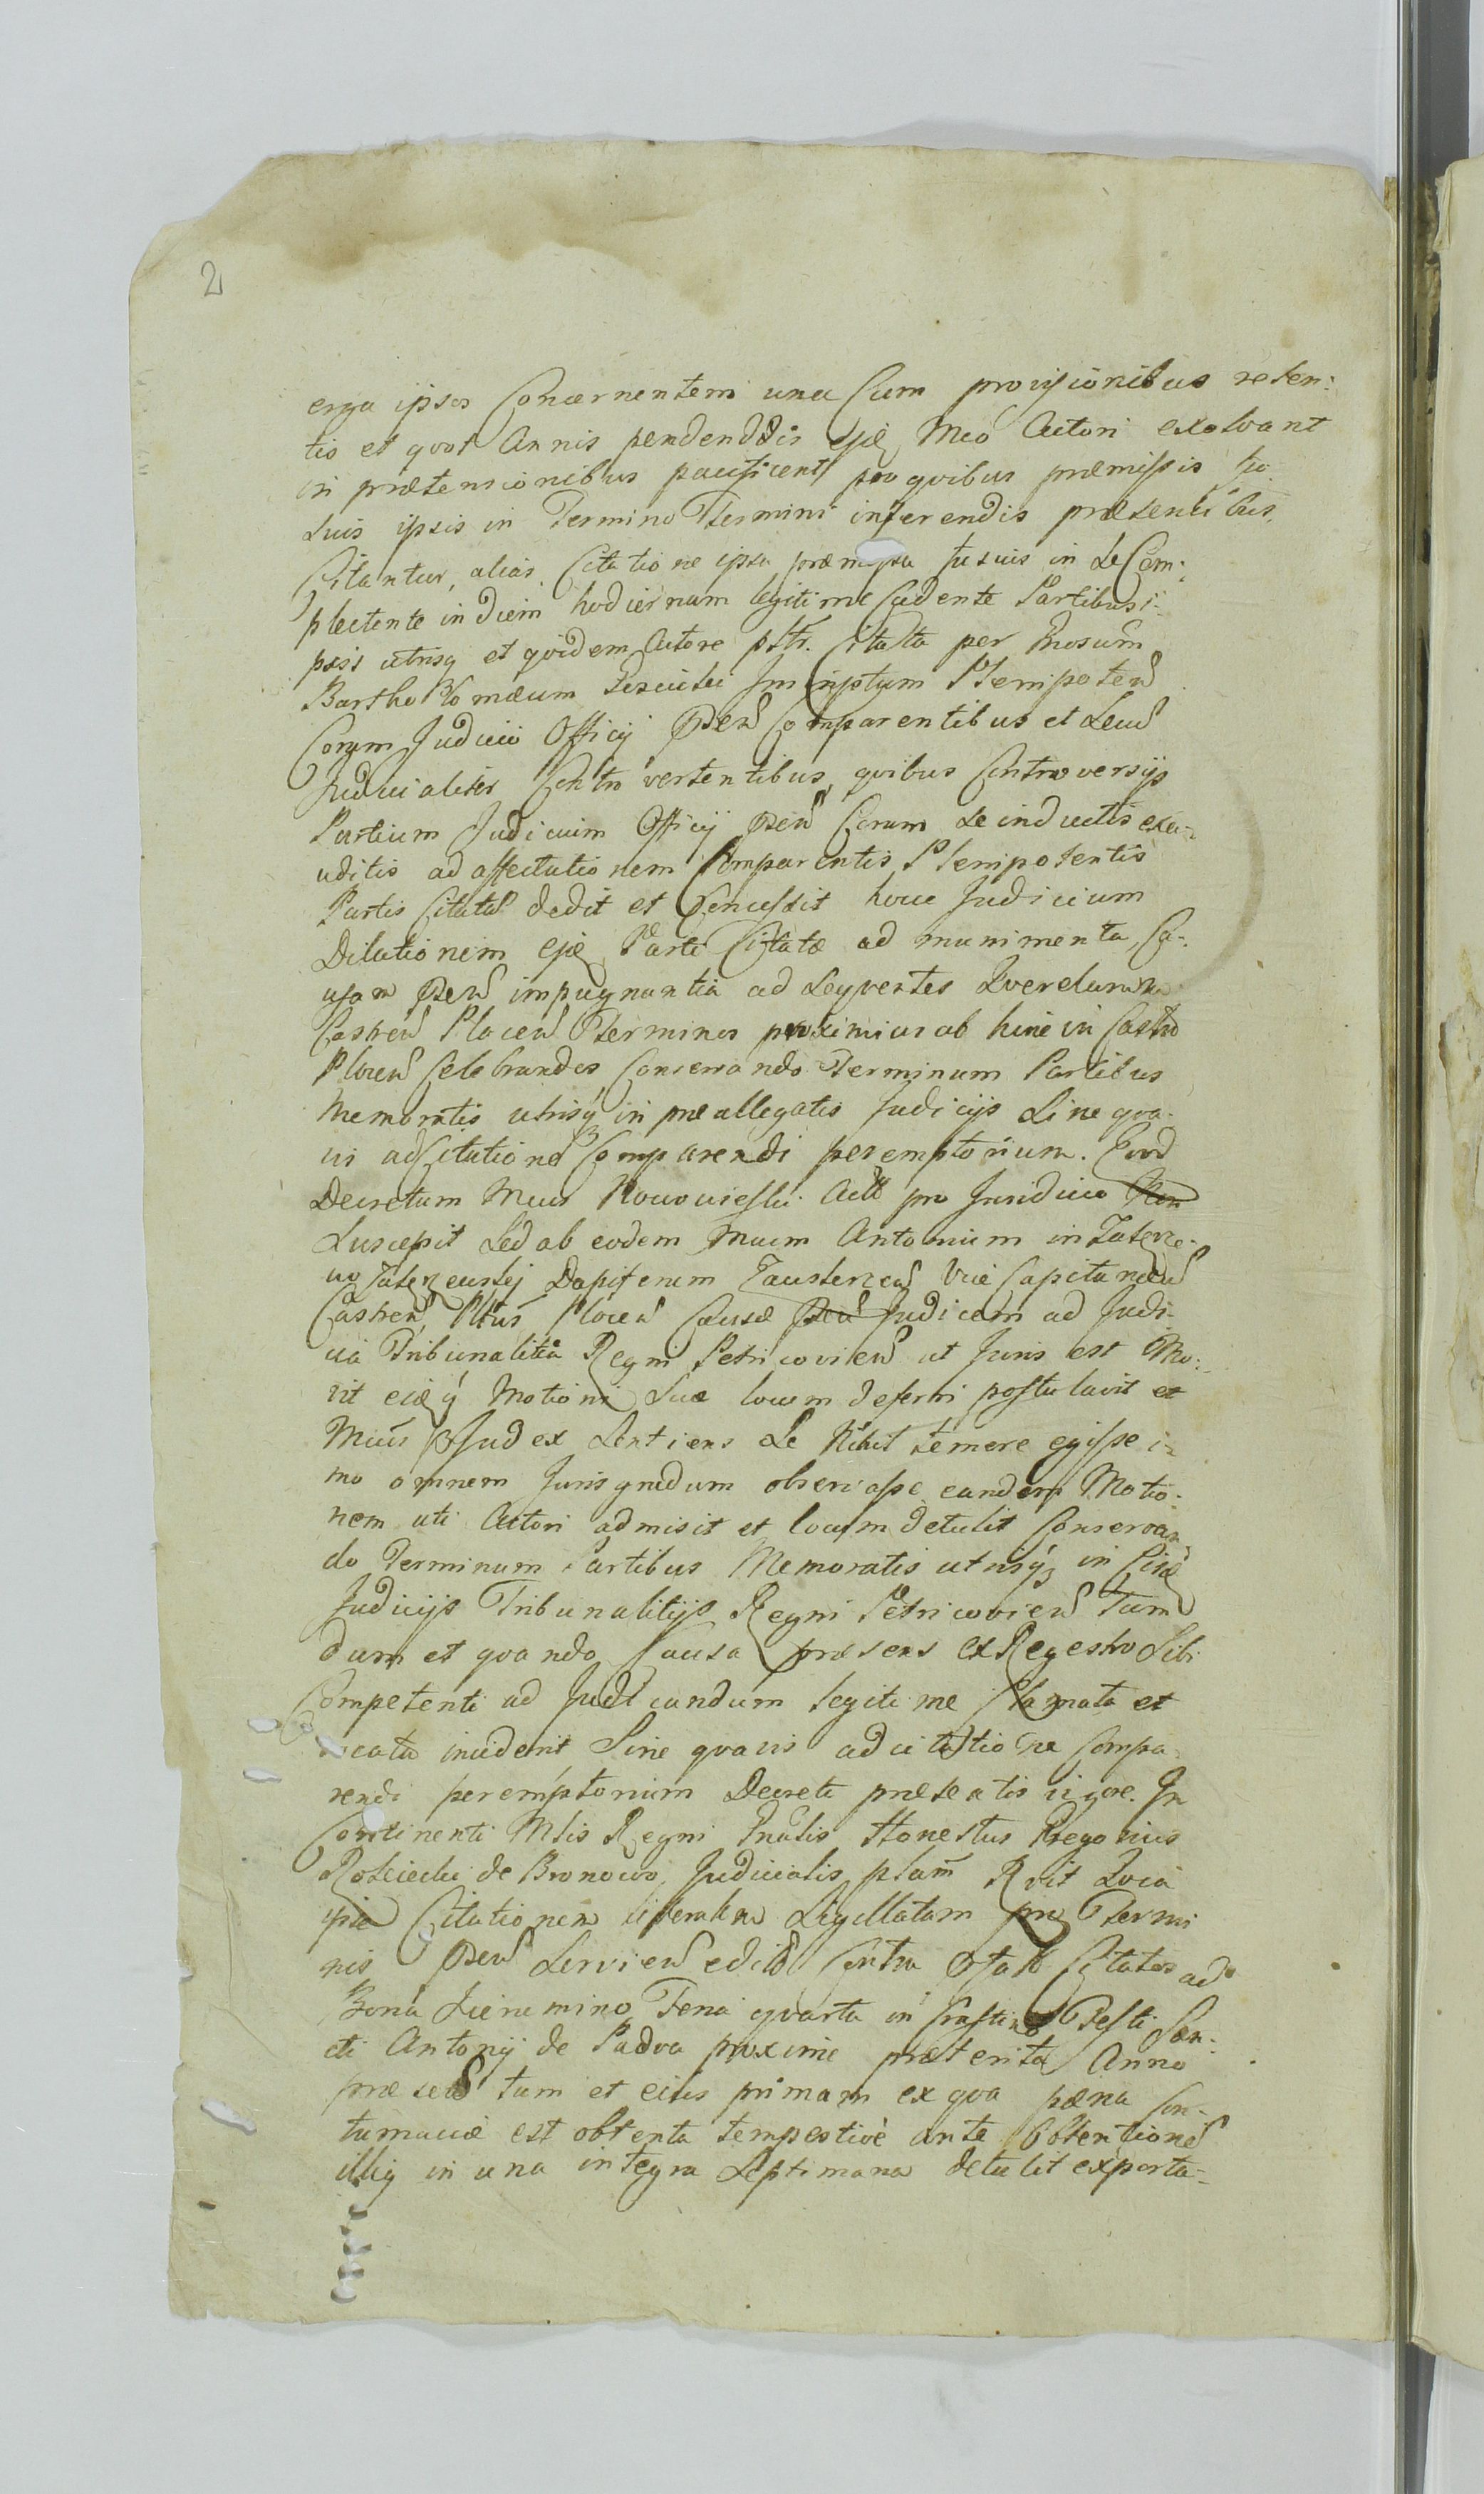 2
erga ipsos Concernentem una Cum provisionibus reten:
tis et quot Annis pendenddis ejdē Mco Actori exolvant
in prætensionibus pacificent pro quibus præmissis fu
suis ipsis in Termino Termini inferendis præsentibus
Citantur, alias Citatione ipsa præmissa fusius in se Com:
plectente in diem hodiernam legitime Cadente Partibus i-
psis utrisq et quidem Actore pltr. Citata per Gnosum
Bartholomæum Inscriptum Plenipoten
Coram Judicio Officij psen Comparentibus et Seu
Judicialiter Controvertentibus, quibus Controversijs
Partium Judicium Officij psen Coram se inductis exa-
uditis ad affectationem Comparentis Plenipotentis
Partis Citatæ dedit et Concessit hocce Judicium
Dilationem ejdē Parti Citatæ ad munimenta Ca-
usam psen impugnantia ad Seqventes Qverelarum
Castren Plocen Terminos proximius ab hinc in Castro
Plocen Celebrandos Conservando Terminum Partibus
Memoratis utrisq in præallegatis Judicijs Sine qva-
vis adCitatione Comparendi peremptorium. Quod
Decretum Mcus Nowowieski Actor pro Juridico Non
Suscepit Sed ab eodem Mucm Antonium in
Dapiferum Vice Capitaneū
Castren, Pltus Plocen Causæ psen Judicem ad Judi-
cia Tribunalitia Regni Petricovien ut Juris est Mo:
vit eidēq Motioni Suæ locum deferri postulavit et
Mcus Judex Sentiens Se Nihil temere egisse i-
mo omnem Juris gradum observasse eandem Motio-
nem uti Actori admisit et locum detulit Conservan
do Terminum Partibus Memoratis utrisq in Eisdē
Judicijs Tribunalitijs Regni Petricovien Tum
dum et quando Causa præsens ex Regestro Sibi
Competenti ad Judicandum legitime Clamata et
vocata inciderit Sine qvavis adcitatione Compa-
rendi peremptorium Decreti præsentis vigore. In
Continenti Mtis Regni Gnalis Honestus Gregorius
Rościecki de Bronowo, Judicialis plam Rvit Quia
ipse Citationem literalem Sigillatam pro Termi
nis psen Servien edito Contra Citatos ad
Bona Feria quarta in Crastino Festi San:
cti Antonij de Padva proxime præterita Anno
præsen tum et eius primam ex qva pæna Con-
tumaciæ est obtenta tempestivè ante Obtentionē
illiq in una integra Septimana detulit exporta-